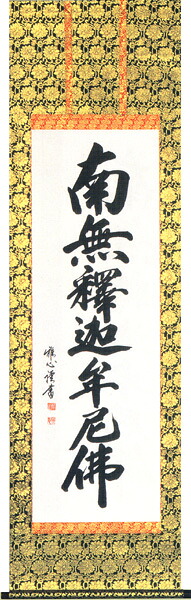 南無釋迦牟尼佛
惟心謹書